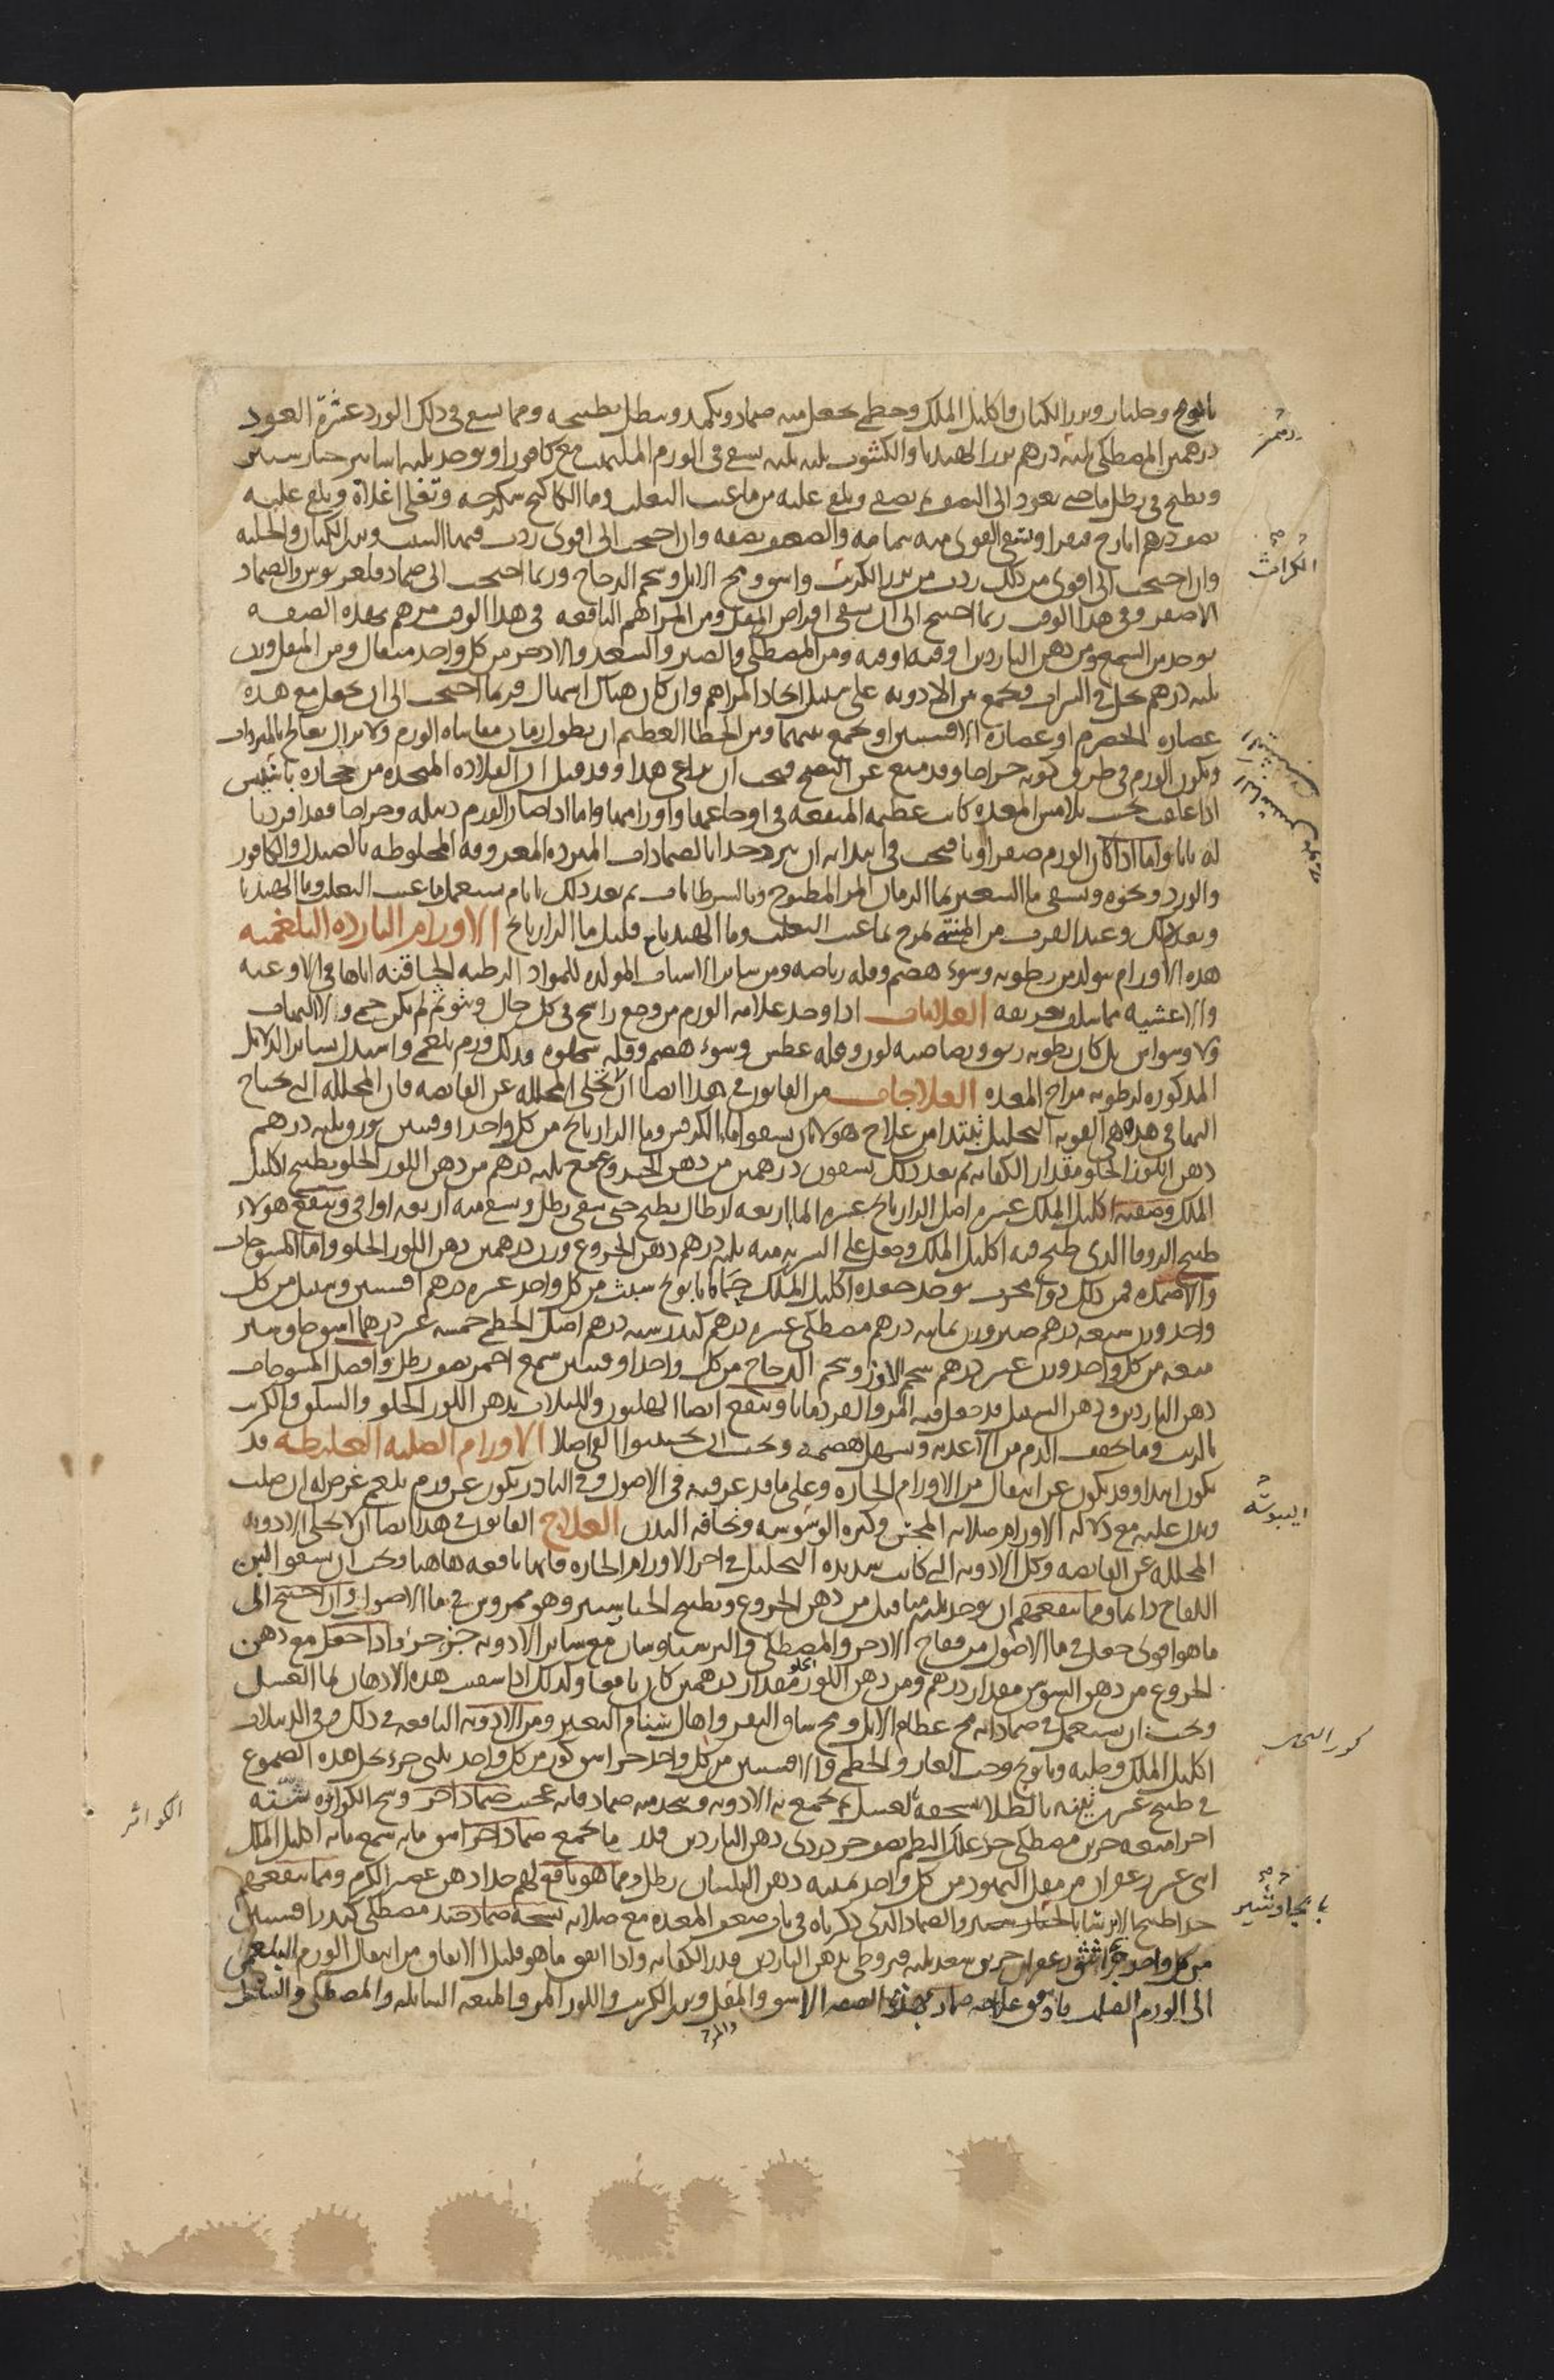 بابونج وحلبه وبزر الكتان واكليل الملك وخطمى يجعل منه ضماد ويكمد وينطل بطبيخه ومما ينفع فى ذلك الورد عشرة العود
درهمين المصطكى ثلثه درهم بزر الهندبا والكشوث ثلثه ثلثه ينفع فى الورم الملتهب مع كافور او يوخذ ثلثه اساتير خيار شنبر
ويطبخ فى رطل ما حتى يعود الى النصف ثم يصفى ويلقى عليه من ما عنب الثعلب وما الكاكنج سكرجه وتغلى اغلاه ويلقى عليه
نصف درهم ايارج فيقرا ويسقى القوى منه بتمامه والضعيف نصفه وان احتجت الى اقوى زدت فيها الشبت وبزر الكتان والحلبه
وان احتجت الى اقوى من ذلك زدت من بزر الكرنب واشق ومخ الايل وشحم الدجاج وربما احتجت الى ضماد فلغريوس والضماد
الاصفر وفى هذا الوقت ربما احتيج الى ان يسقى اقراص المقل ومن المراهم النافعه فى هذا الوقت مرهم بهذه الصفه
يوخذ من الشمع ومن دهن الناردين اوقيه اوقيه ومن المصطكى والصبر والسعد والاذخر من كل واحد مثقال ومن المقل وزن
ثلثه درهم يحل فى الشراب ويجمع من الادويه على سبيل اتخاذ المراهم وان كان هناك اسهال فربما احتجت الى ان يجعل مع هذه
عصاره الحصرم او عصاره الافسنتين او يجمع بينهما ومن الخطا العظيم ان يطول زمان مقاساه الورم ولا يزال يعالج بالمبردات
ويكون الورم فى طريق كونه خراجا وقد منع عن النضج فيجب ان يراعى هذا وقد قيل ان القلاده المتخذه من حجاره باشبس
اذا علقت بحيث تلامس المعده كانت عظيمه المنفعه فى اوجاعها واورامها واما اذا صار الورم دبيله وخراجا فقد افردنا
له بابا واما اذا كان الورم صفراويا فيجب فى ابتدايه ان يبرد جدا بالضمادات المبرده المعروفه المخلوطه بالصندل والكافور
والورد ونحوه ويسقى ما الشعير بما الرمان المز المطبوخ وبالسرطانات ثم بعد ذلك بايام يستعمل ما عنب الثعلب وما الهندبا
وبعد ذلك وعند القرب من المنتهى يمرخ بما عنب الثعلب وما الهندبا مع قليل ما الرازيانج الاورام البارده البلغميه
هذه الاورام تتولد من رطوبه وسوء هضم وقله رياضه ومن ساير الاسباب المولده للمواد الرطبه لحاقنه اياها فى الاوعيه
والاغشيه مما سلف تعريفه العلامات اذا وجد علامه الورم من وجع راسخ فى كل حال ونتو ثم لم يكن حمى ولا التهاب
ولا وسواس بل كان رطوبه ريق ورصاصيه لون وقله عطش وسوء هضم وقله شهوه فذلك ورم بلغمى واستدل بساير الدلايل
المذكوره لرطوبه مزاج المعده العلاجات من القانون فى هذا ايضا ان لا تخلى المحلله عن القابضه فان المحلله التى يحتاج
اليها فى هذه هى القويه التحليل يبتدا من علاج هولا بان يسقوا ما الكرفس وما الرازيانج من كل واحد اوقيتين بوزن ثلثه درهم
دهن اللوز الحلو مقدار الكفايه ثم بعد ذلك يسقون درهمين من دهن الخروع مع ثلثه درهم من دهن اللوز الحلو بطبيخ اكليل
الملك وصفته اكليل الملك عشره اصل الرازيانج عشره الما اربعه ارطال يطبخ حتى يبقى رطل ويسقى منه اربعه اواقى وينفع هولاء
طبيخ الزوفا الذى طبخ فيه اكليل الملك وجعل على الشربه منه ثلثه درهم دهن الخروع وزن درهمين دهن اللوز الحلو واما المسوحات
والاضمده فمن ذلك دوا مجرب يوخذ جعده اكليل الملك حماما بابونج شبث من كل واحد عشره درهم افسنتين وسنبل من كل
واحد وزن سبعه درهم صبر وزن ثمانيه درهم مصطكى عشره درهم كندر سته درهم اصل الخطمى خمسه عشر درهما اشق وجاوشير
ميعه من كل واحد وزن عشر درهم شحم الاوز وشحم الدجاج من كل واحد اوقيتين شمع احمر نصف رطل وافضل المسوحات
دهن الناردين ودهن السنبل قد جعل فيه المر والقردمانا وينفع ايضا الهليون واللبلاب بدهن اللوز الحلو والسلق والكرنب
بالزيت وما يخفف الدم من الاغذيه ويسهل هضمه ويجب ان يجتنبوا القى اصلا الاورام الصلبه الغليظه قد
يكون ابتدا وقد يكون عن انتقال من الاورام الحاره وعلى ما قد عرفته فى الاصول وفى النادر يكون عن ورم بلغمى عرض له ان صلب
ويدل عليه مع دلاله الاورام صلابه المجس وكثره الوسوسه ونحافه البدن العلاج القانون فى هذا ايضا ان لا تخلى الادويه
المحلله عن القابضه وكل الادويه التى كانت شديده التحليل فى اخر الاورام الحاره فانها نافعه هاهنا ويجب ان يسقوا لبن
اللقاح دايما ومما ينفعهم ان يوخذ ثلثه مثاقيل من دهن الخروع بطبيخ الخيارشنبر وهو ممروس فى ما الاصول وان احتيج الى
ما هو اقوى جعل فى ما الاصول من فقاح الاذخر والمصطكى والبرسياوشان مع ساير الادويه جزو جزو واذا جعل مع دهن
الخروع من دهن السوسن مقدار درهم ومن دهن اللوز الحلو مقدار درهمين كان نافعا وكذلك اذا سقيت هذه الادهان بما العسل
ويجب ان يستعمل فى ضماداته مخ عظام الايل ومخ ساق البقر واهال سنام البعير ومن الادويه النافعه فى ذلك وفى الدبيلات
اكليل الملك وحلبه وبابونج وحب الغار والخطمى والافسنتين من كل واحد جزا شق كور من كل واحد ثلثى جزء يحل هذه الصموغ
فى طبيخ عشر تينه بالطلا سحقه بعسل ثم يجمع به الادويه ويتخذ منه ضماد فانه عجيب ضماد اخر وسخ الكوائر سته
اجزا ميعه جزين مصطكى جزو علك البطم نصف جزو دردى دهن الناردين قدر ما يجمع ضماد اخر اشق مايه شمع مايه اكليل الملك
اثنى عشر زعفران مر مقل اليهود من كل واحد ثمنيه دهن البلسان رطل ومما هو نافع لهم جدا دهن عصير الكرم ومما ينفعهم
جدا طبيخ الايرسا بالخيارشنبر والضماد الذى ذكرناه فى باب ضعف المعده مع صلابه نسخه ضماد جيد مصطكى كندر افسنتين
من كل واحد جزا اشق زعفران جزين سعد ثلثه قيروطى بدهن الناردين قدر الكفايه واذا اتفق ما هو قليل الاتفاق من انتقال الورم البلغمى
الى الورم الصلب فاوفق علاجه ضماد بهذه الصفه الاشق والمقل وبزر الكرنب واللوز المر والميعه السايله والمصطكى والسنبل
الكراث
اليبوسه
كور النحل
الكوائر
با نجاوشير